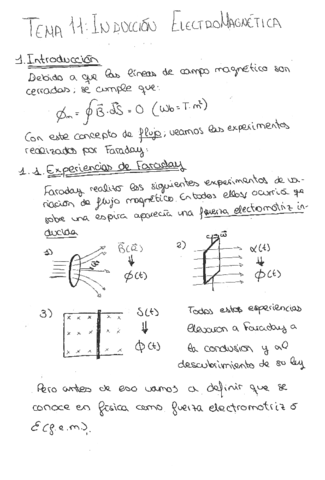 TEMA 11: INDUCCIÓN ELECTROMAGNÉTICA
1. Introducción
Debido a que las líneas de campo magnético son
cerradas, se cumple que:
Φm = ∮ B⃗ · dS⃗ = 0 (Wb = T·m²)
Con este concepto de flujo, veamos los experimentos
realizados por Faraday:
1.1. Experiencias de Faraday
Faraday realizó los siguientes experimentos de va-
riación de flujo magnético. En todos ellos ocurría que
sobre una espira aparecía una fuerza electromotriz in-
ducida.
1) B⃗(t) ⇓ ϕ(t)
2) α(t) ⇓ ϕ(t)
3) S(t) ⇓ ϕ(t)
Todas estas experiencias
llevaron a Faraday a
la conclusión y al
descubrimiento de su ley
Pero antes de eso vamos a definir que se
conoce en física como fuerza electromotriz ó
Ɛ (f.e.m.).